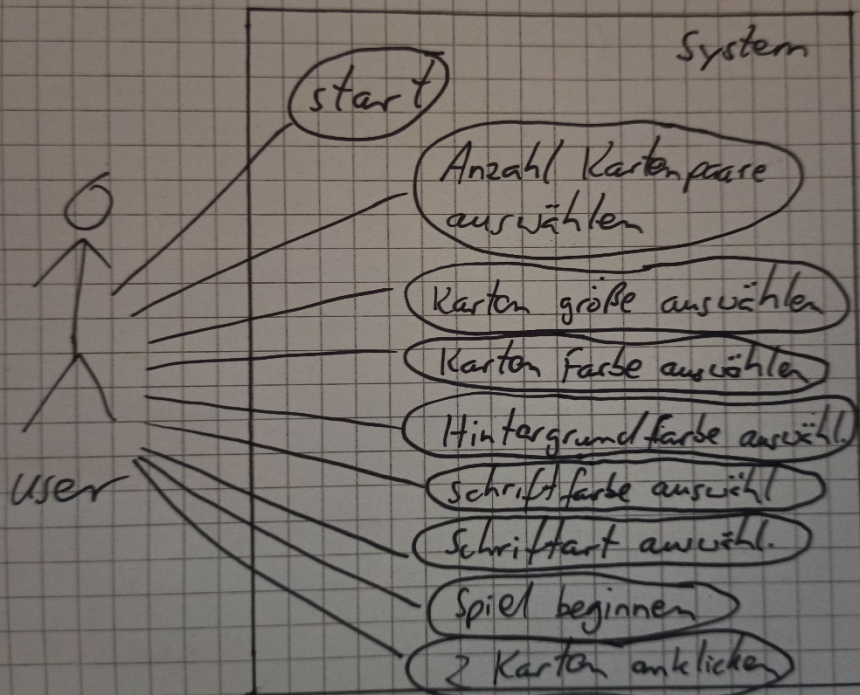 System
start
Anzahl Kartenpaare
auswählen
Karten größe auswählen
Karten Farbe auswählen
Hintergrundfarbe auswähl.
Schriftfarbe auswähl
Schriftart auswähl.
Spiel beginnen
2 Karten anklicken
user